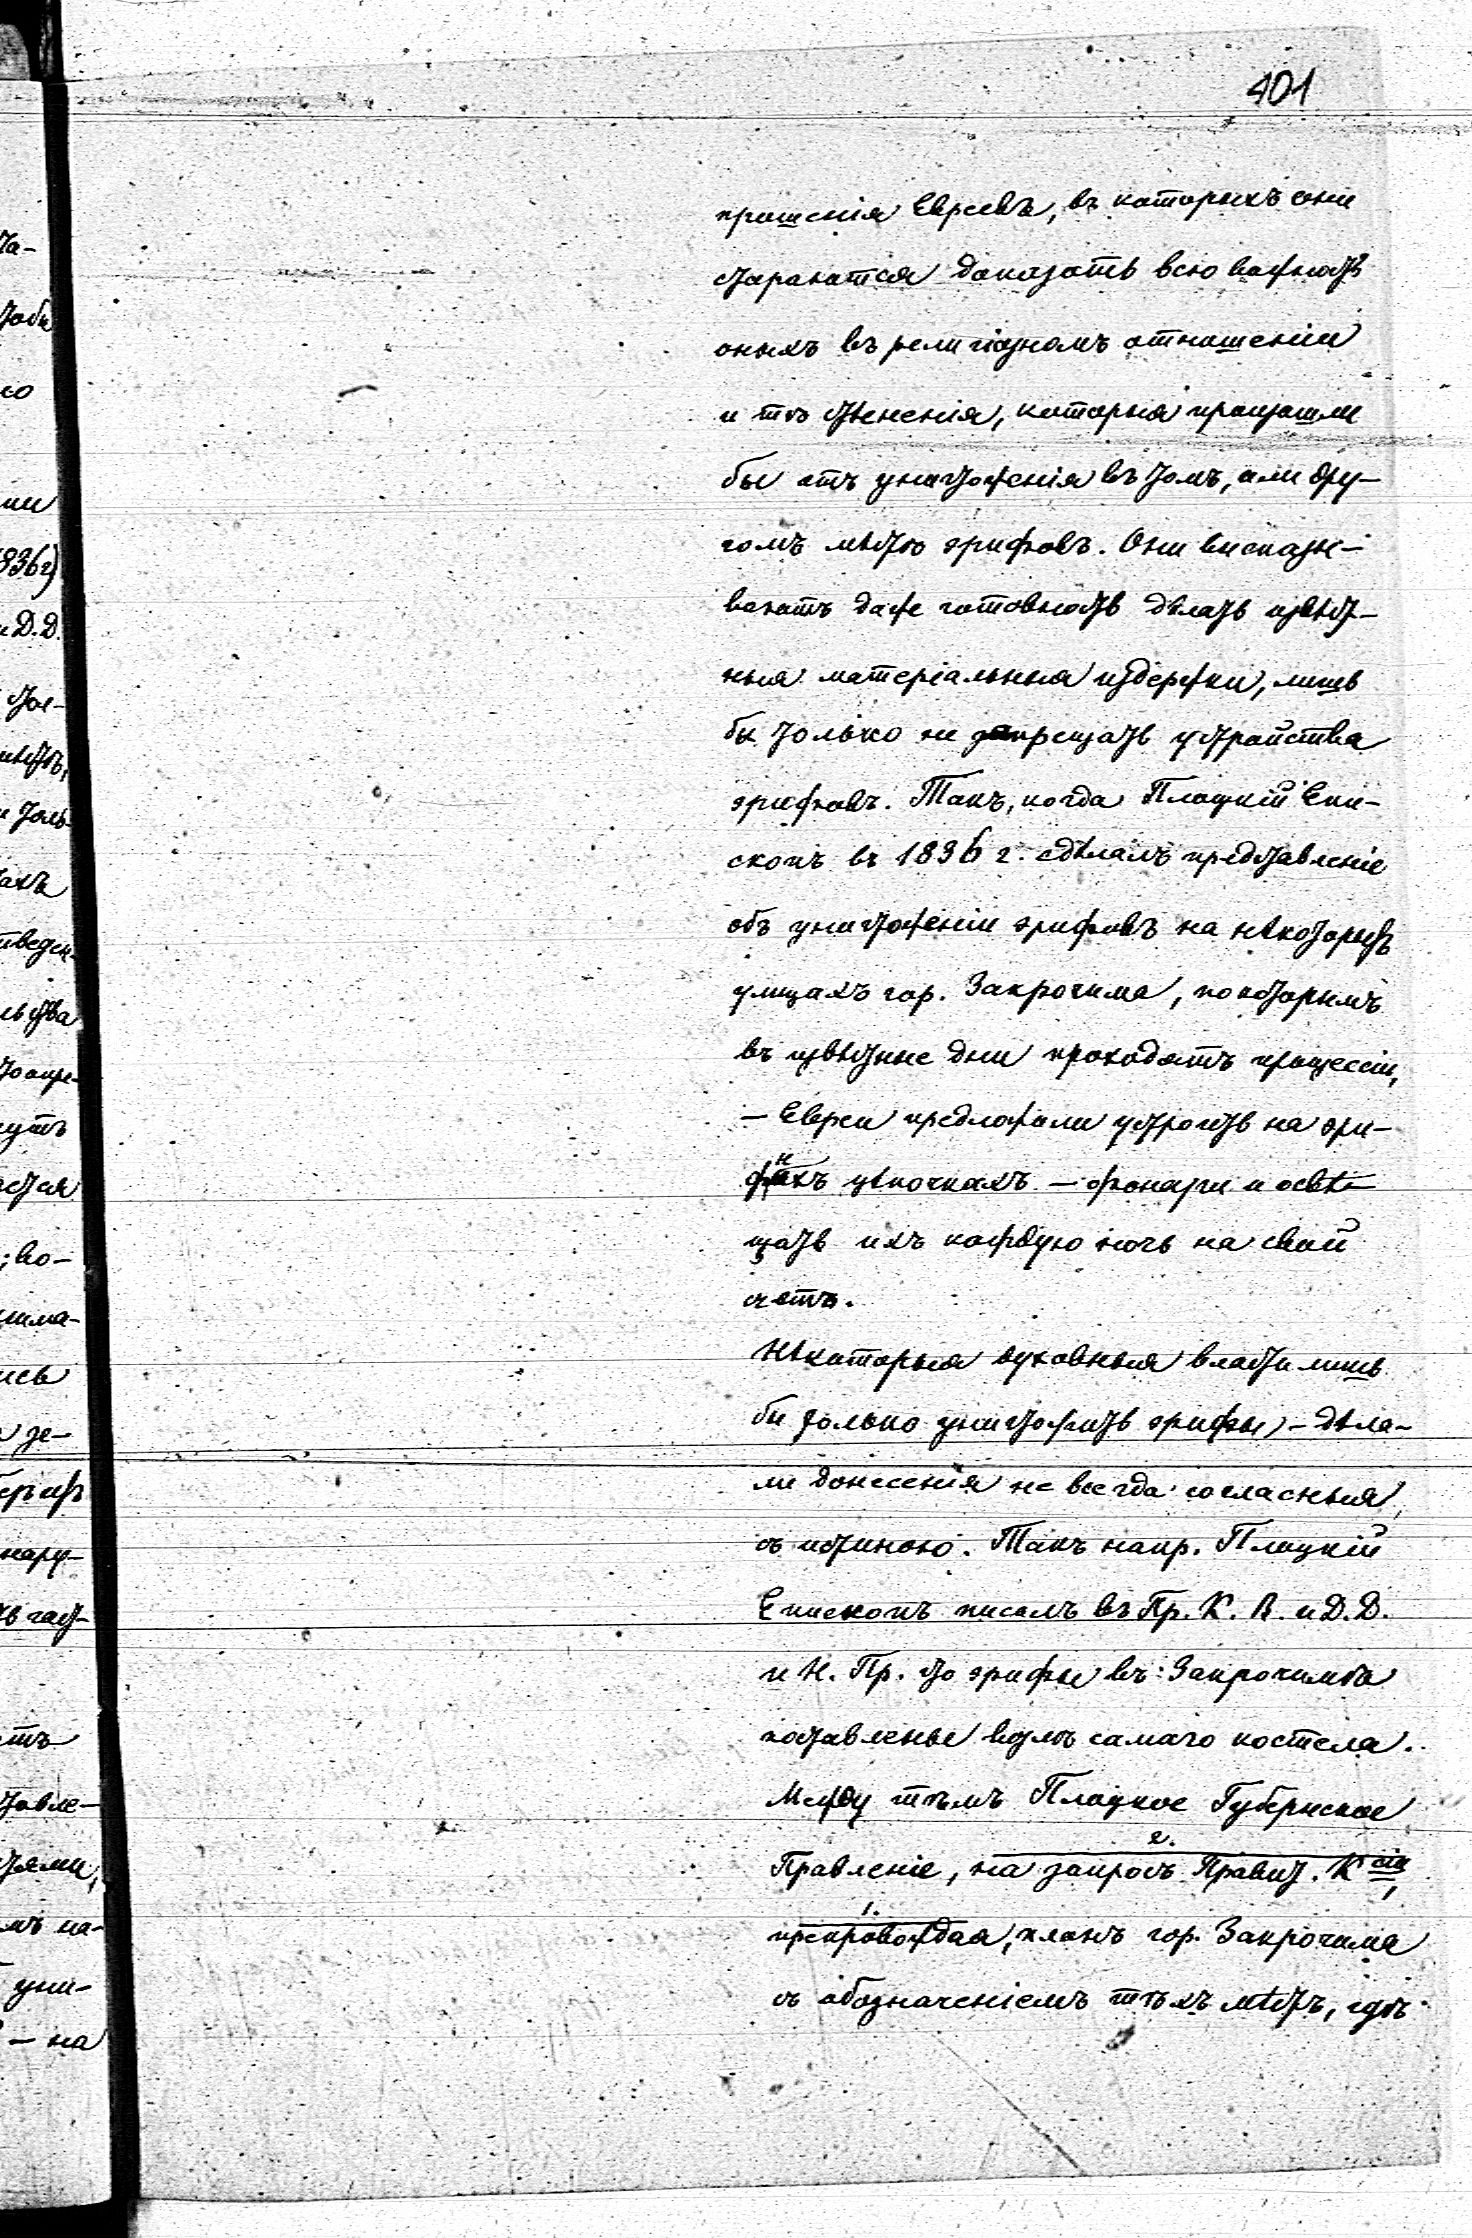 401
прошенія Евреевъ, въ которыхъ они
стараются доказать всю важность
оныхъ въ религіозномъ отношеніи
и тѣ стѣсненія, которыя произошли
бы отъ уничтоженія въ томъ, или дру-
гомъ мѣстѣ эрифовъ. Они высказы-
ваютъ даже готовность дѣлать извѣст-
ныя матеріальныя издержки, лишь
бы только не запрещать устройства
эрифовъ. Такъ, когда Плоцкій Епи-
скопъ въ 1836 г. сдѣлалъ представленіе
объ уничтоженіи эрифовъ на нѣкоторыхъ
улицахъ гор. Закрочима, по которымъ
въ извѣстные дни проходятъ процессіи,
— Евреи предложили устроить на эри-
цѣпочкахъ — фонари и освѣ-
щать ихъ каждую ночь на свой
счетъ.
Нѣкоторыя духовныя власти лишь
бы только уничтожить эрифы, — дѣла-
ли донесенія не всегда согласныя
съ истиною. Такъ напр. Плоцкій
Епископъ писалъ въ Пр. К. В. и Д. Д.
и Н. Пр. что эрифы въ Закрочимѣ
поставлены возлѣ самаго костела.
Между тѣмъ Плоцкое Губернское
2.
Правленіе, на запросъ Правит. К сіи,
1.
препровождая, планъ гор. Закрочима
съ обозначеніемъ тѣхъ мѣстъ, гдѣ
836 г)
и Д. Д.
уни-
— на